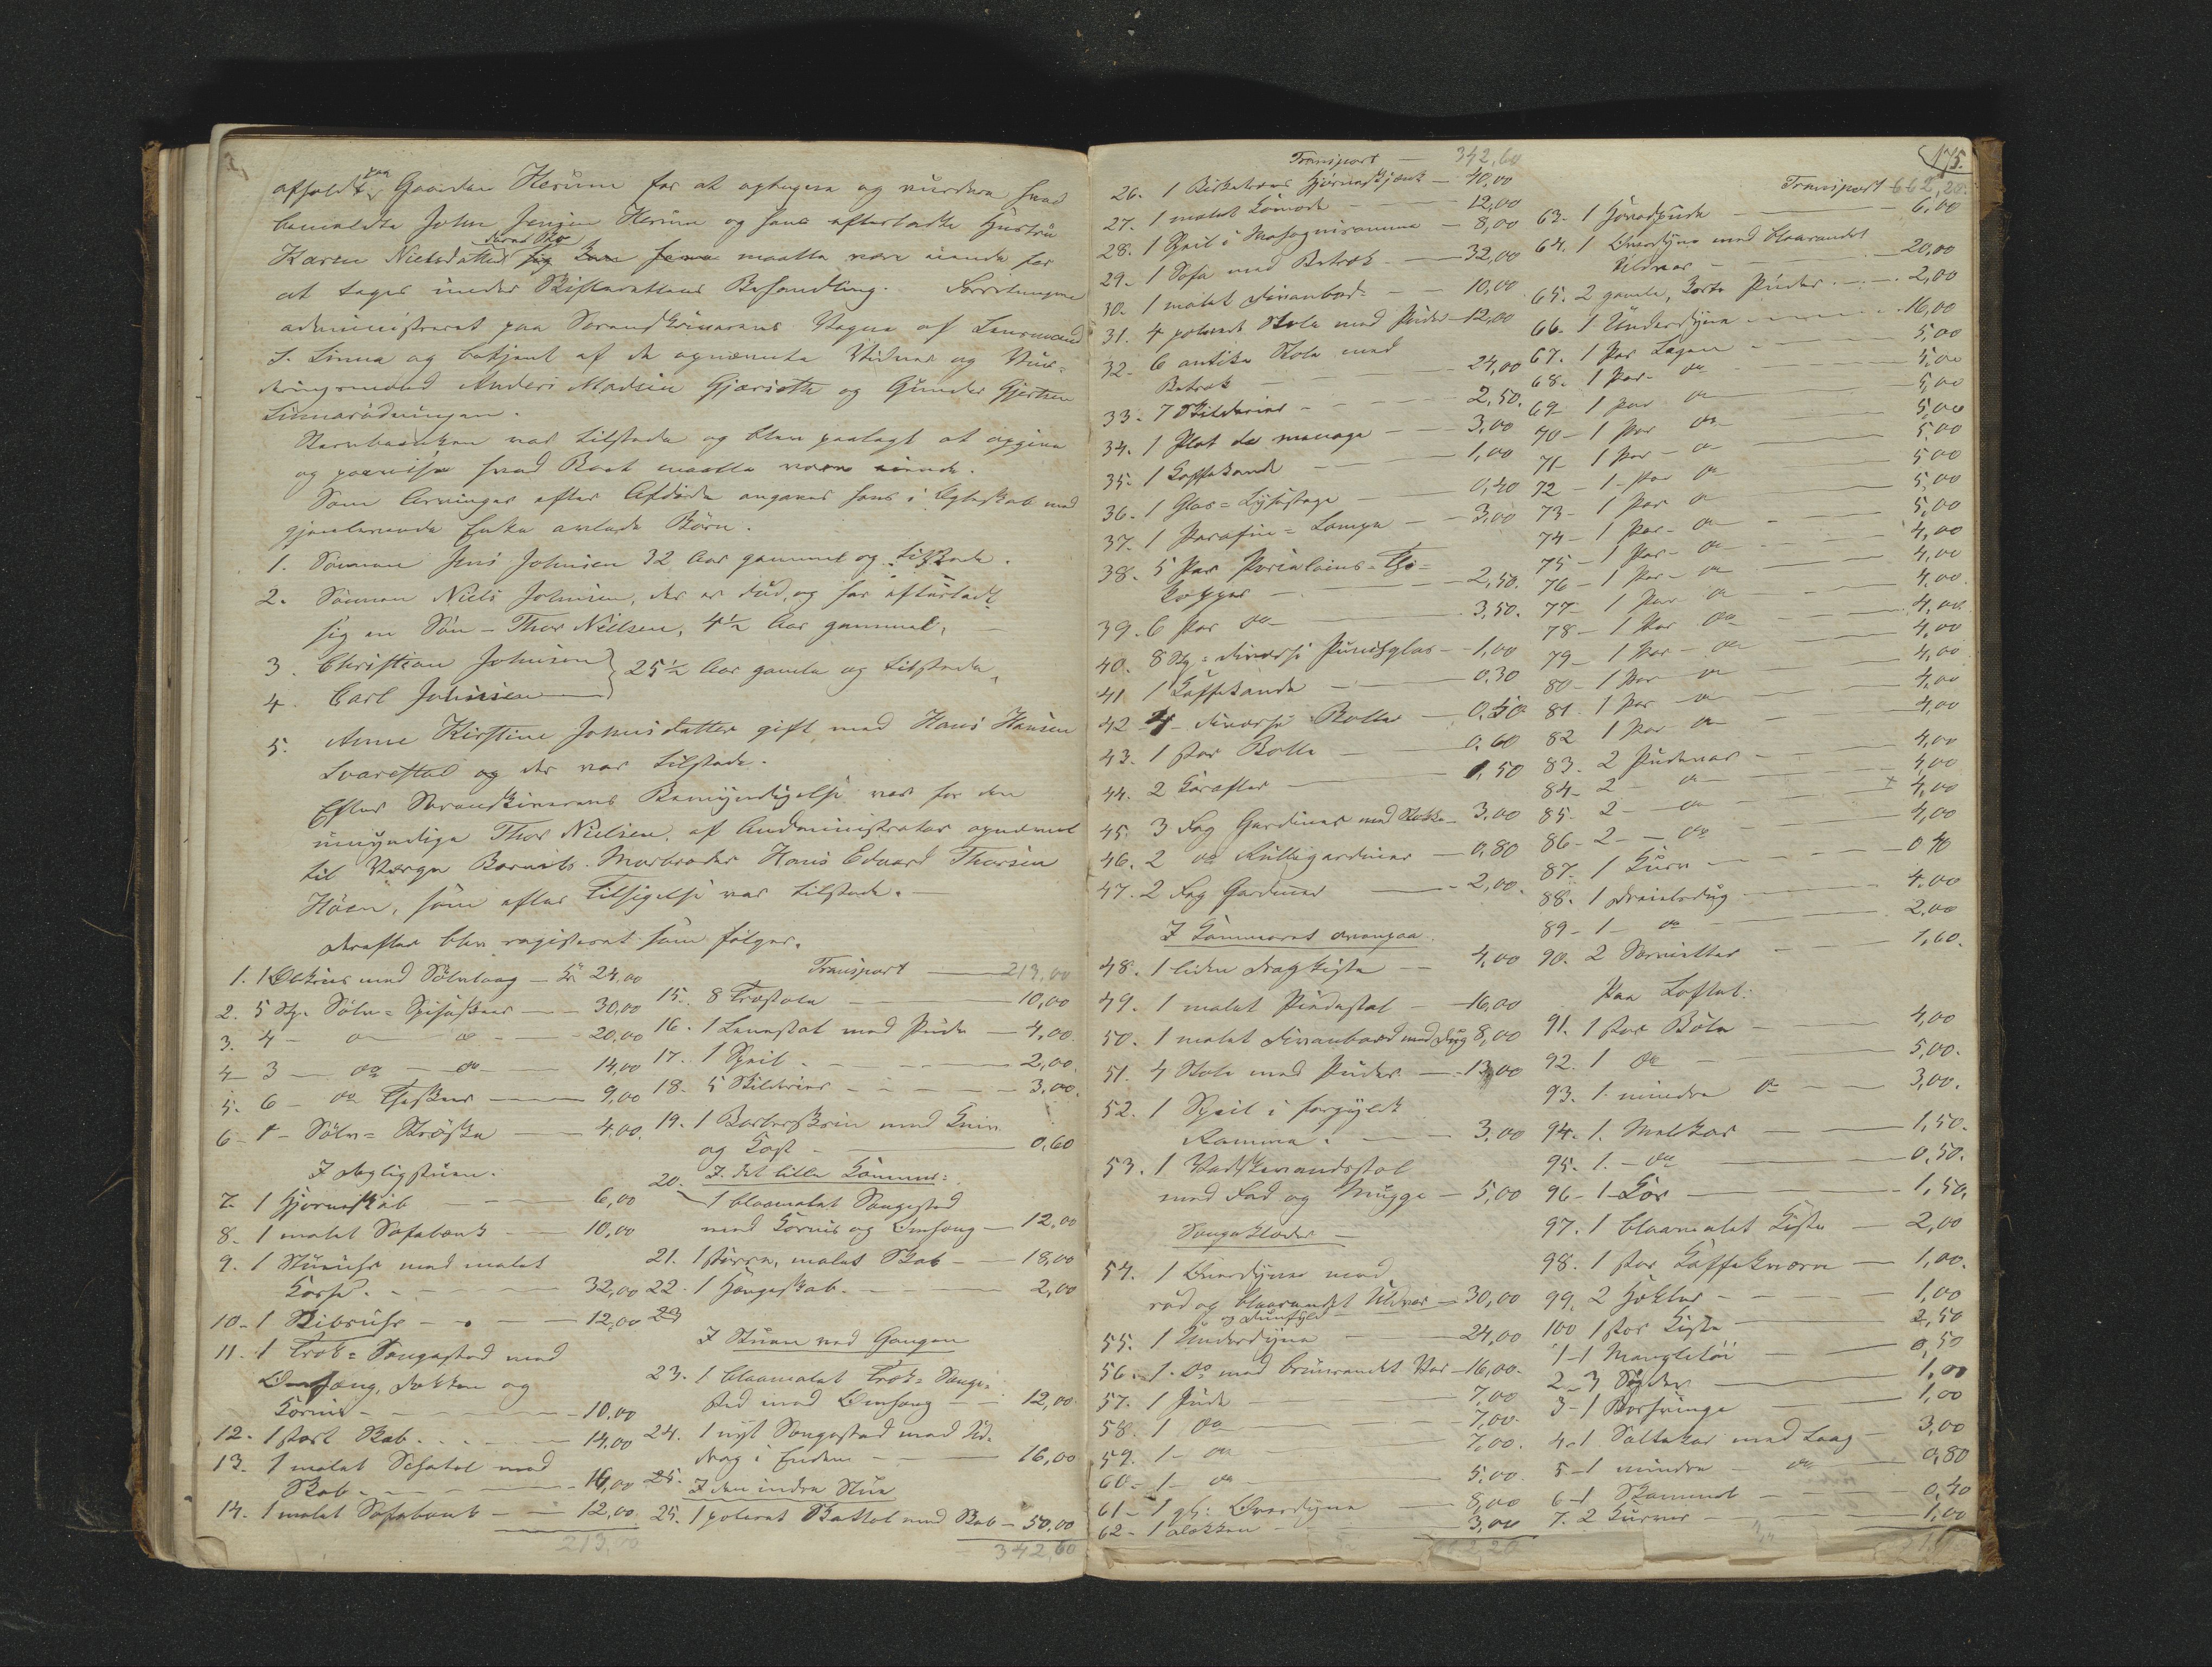 afholdt paa Gaarden Herum for at optegne og vurdere hvad
bemeldte John Jensen Herum og hans efterladte Hustru
Karen Nielsdatter maatte være eiende for
at tages under Skifterettens Behandling. Forretningen
administreret paa Sorenskriverens Vegne af Lensmand
S. Linnes og betjent af de opnævnte Vidner og Vur-
deringsmænd Anders Madsen Gjærsøth og Gunder Gjertsen
Linnesødningen.
Stervboenken var tilstede og blev paalagt at opgive
og paavise hvad Boet maatte være eiende.
Som Arvinger efter Afdøde angaves hans i Ægteskab med
gjenlevende Enke avlede Børn.
1. Sønnen Jens Johnsen 32 Aar gammel og tilstede.
2. Sønnen Niels Johnsen, der er død, og har efterladt
sig en Søn - Thor Nielsen, 4½ Aar gammel,
3. Christian Johnsen } 25½ Aar gamle og tilstede,
4. Carl Johnsen
5. Anne Kirstine Johnsdatter gift med Hans Hansen
Svarestad og der var tilstede.
Efter Sorenskriverens Bemyndigelse var for den
umyndige Thor Nielsen af Administrator opnævnt
til Værge Barnets Morbroder Hans Edvard Thorsen
Höen, som efter Tilsigelse var tilstede.
Derefter blev registreret som følger.
1. 1 Ølkrus med Sølvlaag - Kr 24,00
2. 5 Stk. Sølv-Spiseskeer - 30,00
3. 4 - do - do - 20,00
4 3 - do - do 14,00
5. 6 - do Theskeer 9,00
6 - 1 - Sølv-Strøske 4,00.
I Dagligstuen.
7. 1 Hjørneskab 6,00
8. 1 malet Sofabænk 10,00
9. 1 Stueuhr med malet
Kasse. 32,00
10. 1 Bibeuhr 12,00
11. 1 Træk-Sengested med
Omhæng, Dækken og
Kornis 10,00
12. 1 stort Skab. 14,00
13. 1 malet Schatol med
Skab 16,00
14. 1 malet Sofabænk - 12,00
213,00
Transport 213,00
15. 8 Træstole 10,00
16. 1 Lænestol med Pude 4,00
17. 1 Speil 2,00
18. 5 Skilderier 3,00
19. 1 Barberskrin med Kniv
og Kost 0,60
20. I det lille Kammer:
1 blaamalet Sengested
med Kornis og Omhæng 12,00
21. 1 større, malet Skab 18,00
22. 1 Hængeskab. 2,00
23
I Stuen ved Gangen
23. 1 blaamalet Træk-Senge-
sted med Omhæng 12,00
24. 1 nyt Sengested med Ud-
drag i Enden 16,00
25. I den indre Stue
25. 1 poleret Chattol med Skab - 50,00
342,60
Transport - 342,60
26. 1 Birketræes Hjørneskjænk 40,00
27. 1 malet Komode 12,00
28. 1 Speil i Mahogniramme 8,00
29. 1 Sofa med Betræk 32,00
30. 1 malet Divanbord 10,00
31. 4 polerede Stole med Puder 12,00
32. 6 antike Stole med
Betræk 24,00
33. 7 Skilderier 2,50.
34. 1 Plat de menage 3,00
35. 1 Kaffekande 1,00
36. 1 Glas-Lysestage 0,40
37. 1 Parafin-Lampe 3,00
38. 5 Par Porcelains-The-
kopper 2,50.
39. 6 Par do 3,50.
40. 8 Stk. diverse Punschglas 1,00
41. 1 Kaffekande 0,30
42 4 diverse Boller 0,50
43. 1 stor Bolle 0,60
44. 2 Karafler 1,50
45. 3 Fag Gardiner med Stokke 3,00
46. 2 do Rullegardiner 0,80
47. 2 Fag Gardiner 2,00.
I Kammeret ovenpaa.
48. 1 liden Dragkiste 4,00
49. 1 malet Pindestol 16,00
50. 1 malet Divanbord med Dug 8,00
51. 4 Stole med Puder 13,00
52. 1 Speil i forgyldt
Ramme. 3,00
53. 1 Vadskevandsstol
med Fad og Mugge 5,00
Sengeklæder
54. 1 Overdyne med
rød og blaarandet Uldvar 30,00
og Dunfyld
55. 1 Underdyne 24,00
56. 1 do med brunrandet Var 16,00.
57. 1 Pude 7,00
58. 1 do 7,00.
59. 1 - do 7,00.
60. 1 - do 5,00.
61 - 1 gl: Overdyne 8,00
62 - 1 Dækken 3,00
662,20
175.
Transport 662,20.
63. 1 Hovedpude 6,00
64. 1 Overdyne med blaarandet
Uldvar 20,00
65. 2 gamle, korte Puder 2,00
66. 1 Underdyne 16,00
67. 1 Par Lagen 5,00
68. 1 Par do 5,00
69 1 Par do 5,00
70 - 1 Par do 5,00
71 - 1 Par - do 5,00
72 - 1 - Par do 5,00
73 - 1 Par do 5,00
74 - 1 Par - do 5,00
75 - 1 Par - do 4,00
76 - 1 Par - do 4,00
77 - 1 Par do 4,00
78 - 1 Par do 4,00
79 - 1 Par - do 4,00
80 - 1 Par do 4,00
81. 1 Par do 4,00
82 1 Par do 4,00
83. 2 Pudevar 4,00
84 - 2 do 4,00
85. 2 - do × 4,00
86 - 2 - do 4,00
87. 1 Kurv 0 40
88. 1 Dreielsdug 4,00
89 - 1 - do 2,00
90. 2 Servietter 1,60.
Paa Loftet:
91. 1 stor Bøtte 4,00
92. 1 do 5,00.
93. 1 mindre do 3,00.
94. 1. Melkar 1,50.
95. 1. - do 0,50.
96 - 1 Kar 1,50.
97. 1 blaamalet Kiste 2,00
98. 1 stor Kaffekværn 1,00.
99. 2 Hekler 1,00
100 1 stor Kiste 2,50
1 - 1 Mangletøi 0,50
2 - 3 1,00
3 - 1 1,00
4 - 1 Saltekar med Laag 3,00
5 - 1 mindre do 0,80
6 - 1 Skammel 0,40
7. 2 Kurver 1,00